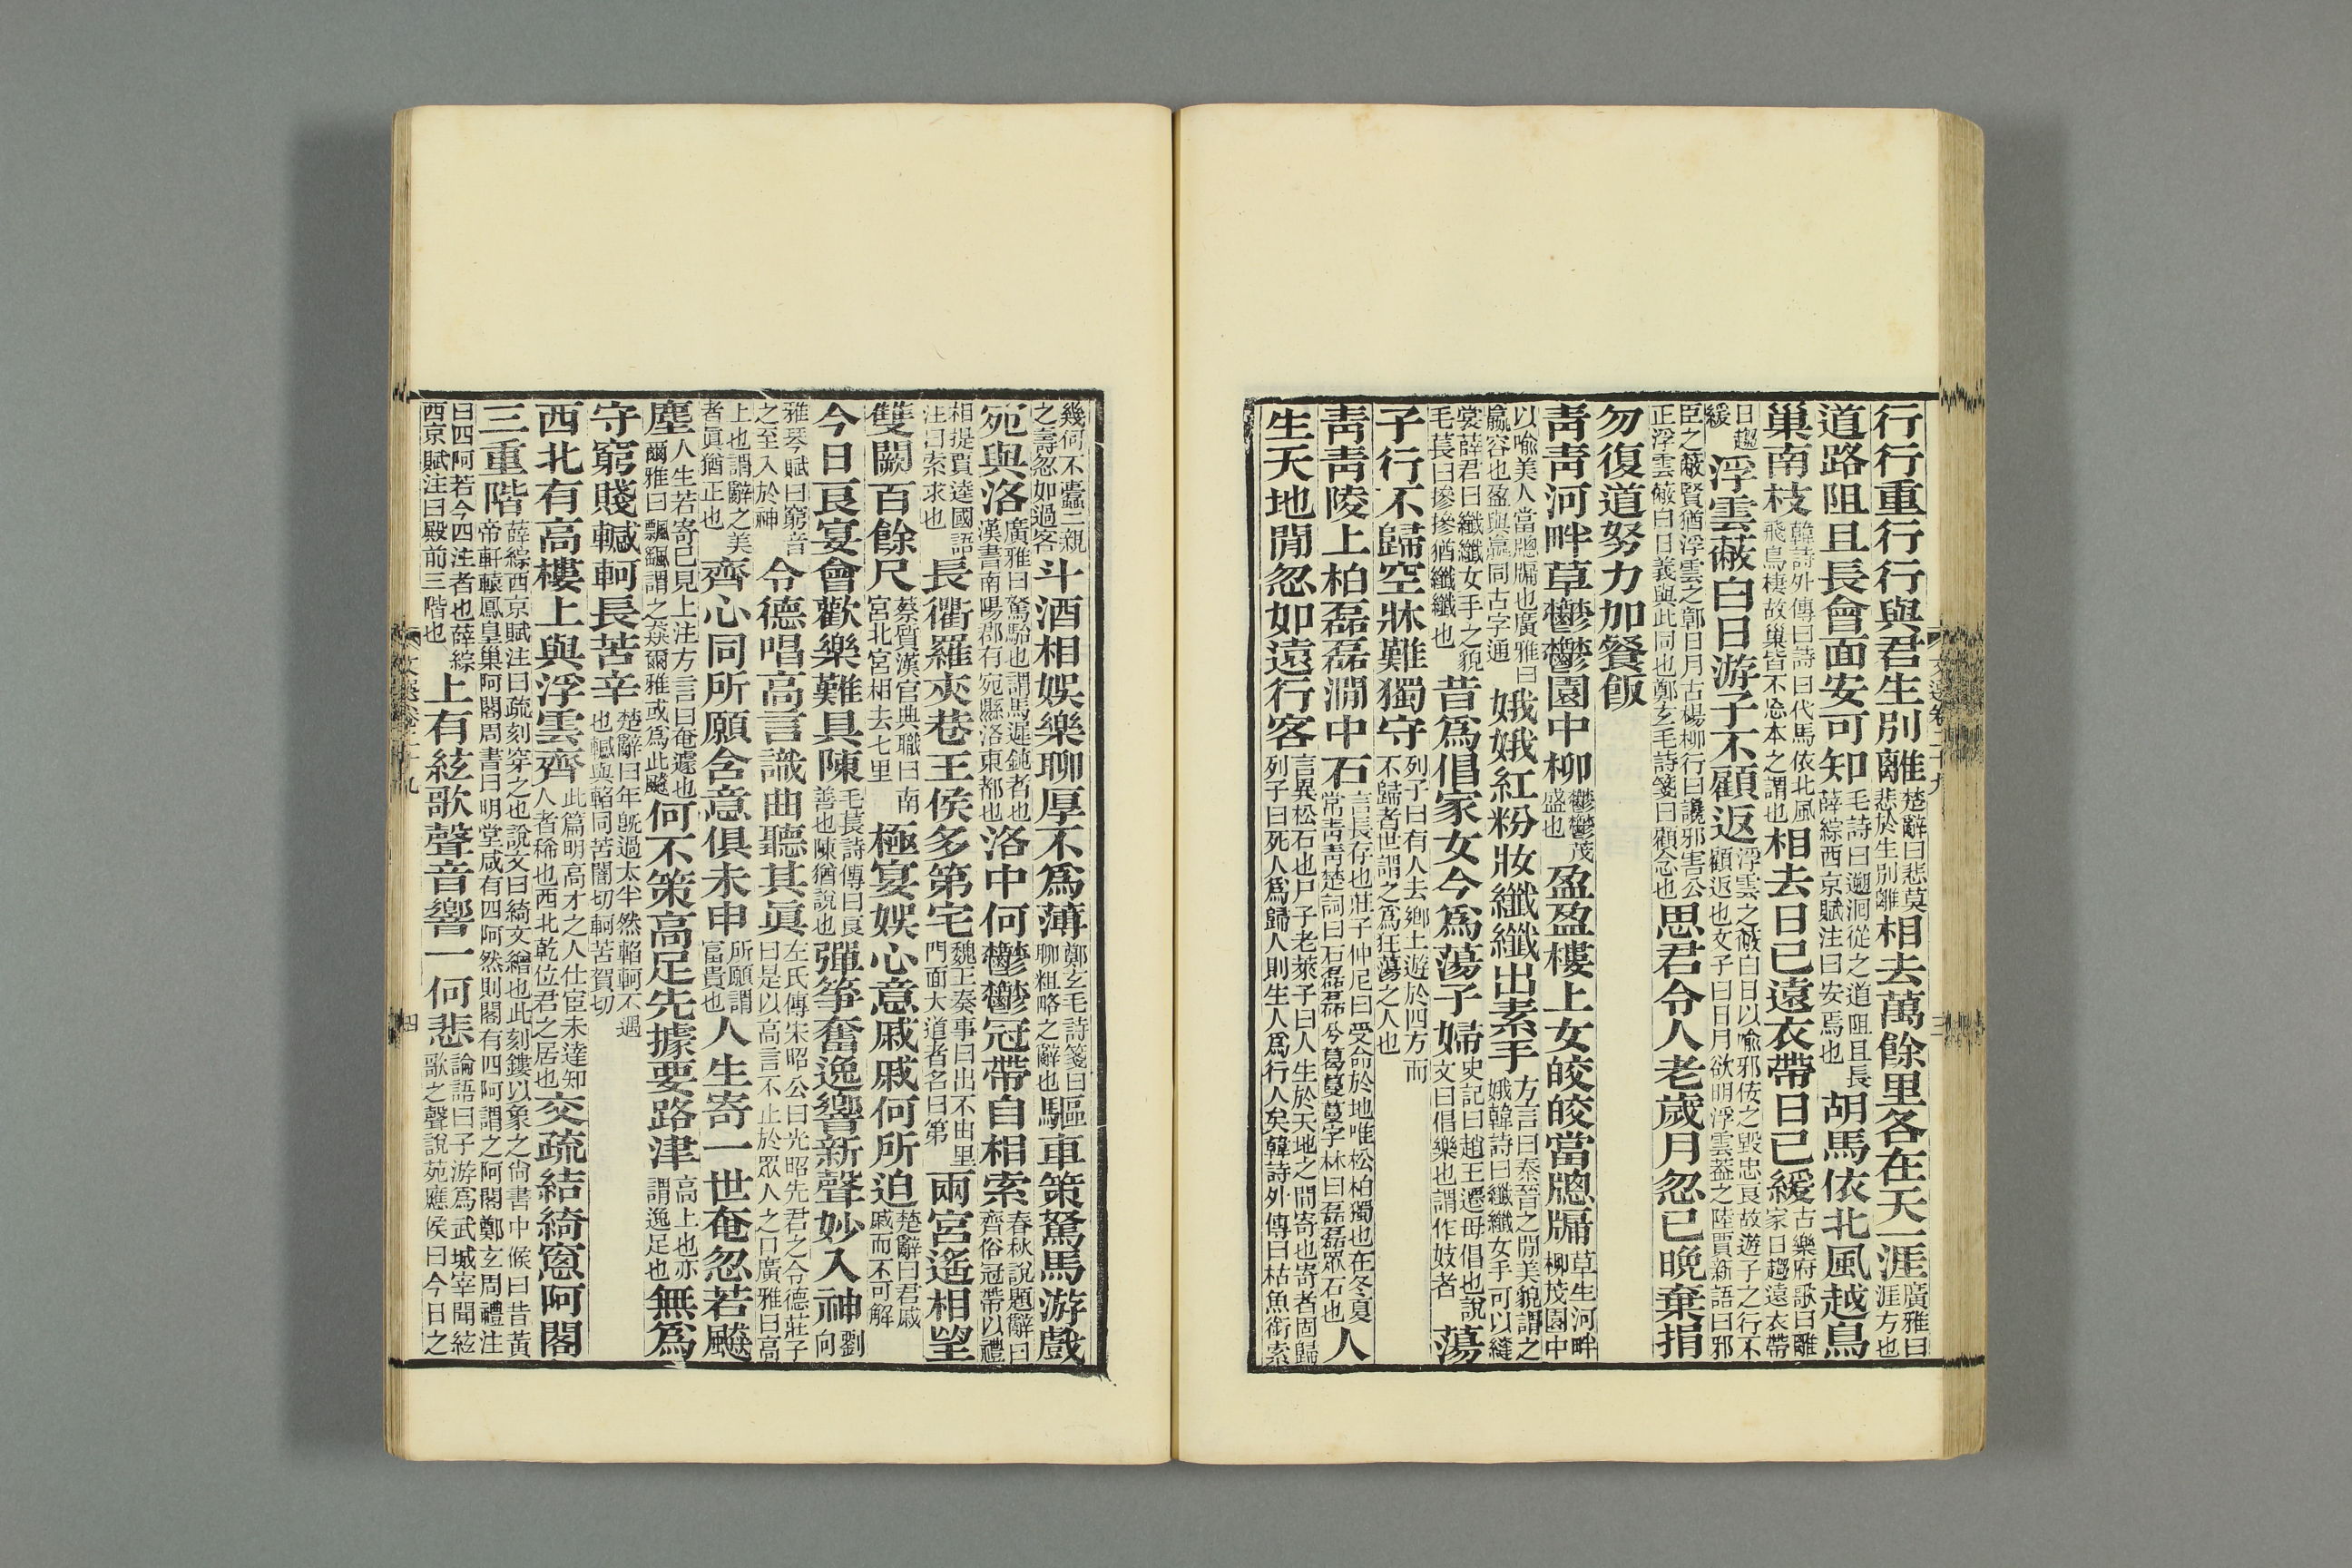 行行重行行與君生別離楚辭曰悲莫悲於生別離相去萬餘里各在天一涯廣雅曰涯方也
道路阻且長會面安可知毛詩曰遡洄從之道阻且長薛綜西京賦注曰安焉也胡馬依北風越鳥
巢南枝韓詩外傳曰詩曰代馬依北風飛鳥棲故巢皆不忘本之謂也相去日已遠衣帶日已緩古樂府歌曰離家日趨遠衣帶
日趨緩浮雲蔽白日游子不顧返浮雲之蔽白日以喻邪佞之毀忠良故遊子之行不顧返也文子曰日月欲明浮雲蓋之陸賈新語曰邪
臣之蔽賢猶浮雲之鄣日月古楊柳行曰讒邪害公正浮雲蔽白日義與此同也鄭玄毛詩箋曰顧念也思君令人老歲月忽已晚棄捐
勿復道努力加餐飯
青青河畔草鬱鬱園中柳鬱鬱茂盛也盈盈樓上女皎皎當牕牖草生河畔柳茂園中
以喻美人當牕牖也廣雅曰嬴容也盈與嬴同古字通娥娥紅粉妝纖纖出素手方言曰秦晉之閒美貌謂之娥韓詩曰纖纖女手可以縫
裳薛君曰纖纖女手之貌毛萇曰摻摻猶纖纖也昔爲倡家女今爲蕩子婦史記曰趙王遷母倡也說文曰倡樂也謂作妓者蕩
子行不歸空牀難獨守列子曰有人去鄉土遊於四方而不歸者世謂之爲狂蕩之人也
青青陵上柏磊磊澗中石言長存也莊子仲尼曰受命於地唯松柏獨也在冬夏常青青楚詞曰石磊磊兮葛蔓蔓字林曰磊磊眾石也人
生天地閒忽如遠行客言異松石也尸子老萊子曰人生於天地之閒寄也寄者固歸列子曰死人爲歸人則生人爲行人矣韓詩外傳曰枯魚銜索
文選卷二十九
三
幾何不蠹二親之壽忽如過客斗酒相娛樂聊厚不爲薄鄭玄毛詩箋曰聊粗略之辭也驅車策駑馬游戲
宛與洛廣雅曰駑駘也謂馬遲鈍者也漢書南陽郡有宛縣洛東都也洛中何鬱鬱冠帶自相索春秋說題辭曰齊俗冠帶以禮
相提賈逵國語注曰索求也長衢羅夾巷王侯多第宅魏王奏事曰出不由里門面大道者名曰第兩宮遙相望
雙闕百餘尺蔡質漢官典職曰南宮北宮相去七里極宴娛心意戚戚何所迫楚辭曰君戚戚而不可解
今日良宴會歡樂難具陳毛萇詩傳曰良善也陳猶說也彈箏奮逸響新聲妙入神劉向
雅琴賦曰窮音之至入於神令德唱高言識曲聽其眞左氏傳宋昭公曰光昭先君之令德莊子曰是以高言不止於眾人之口廣雅曰高
上也謂辭之美者眞猶正也齊心同所願含意俱未申所願謂富貴也人生寄一世奄忽若飇
塵人生若寄已見上注方言曰奄遽也爾雅曰飄飖謂之猋爾雅或爲此飇何不策高足先據要路津高上也亦謂逸足也無爲
守窮賤轗軻長苦辛楚辭曰年旣過太半然轗軻不遇也轗與輡同苦闇切軻苦賀切
西北有高樓上與浮雲齊此篇明高才之人仕宦未達知人者稀也西北乾位君之居也交疏結綺窻阿閣
三重階薛綜西京賦注曰疏刻穿之也說文曰綺文繒也此刻鏤以象之尙書中候曰昔黃帝軒轅鳳皇巢阿閣周書曰明堂咸有四阿然則閣有四阿謂之阿閣鄭玄周禮注
曰四阿若今四注者也薛綜西京賦注曰殿前三階也上有絃歌聲音響一何悲論語曰子游爲武城宰聞絃歌之聲說苑應侯曰今日之
文選卷二十九
四